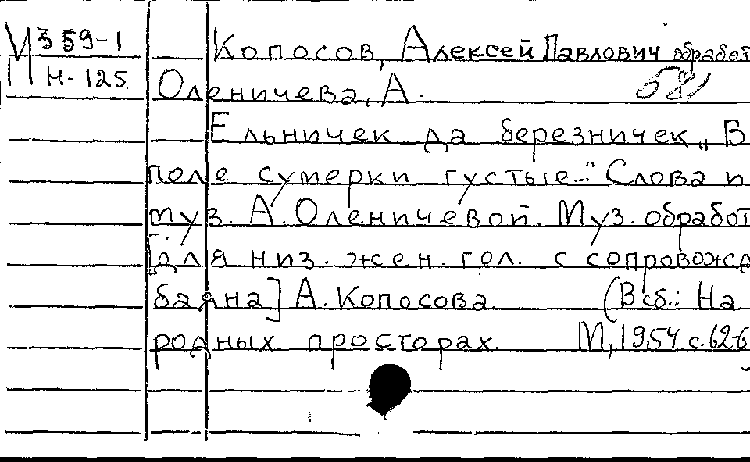 М 359-1 Копосов, Алексей Павлович обработ
Н-125 Оленичева, А.
Ельничек да березничек „В
поле сумерки густые..." Слова и
муз. А. Оленичевой. Муз. обработ
[для низ. жен. гол. с сопровожд
баяна] А. Копосова. (В сб.: На
родных просторах. М, 1954 с.